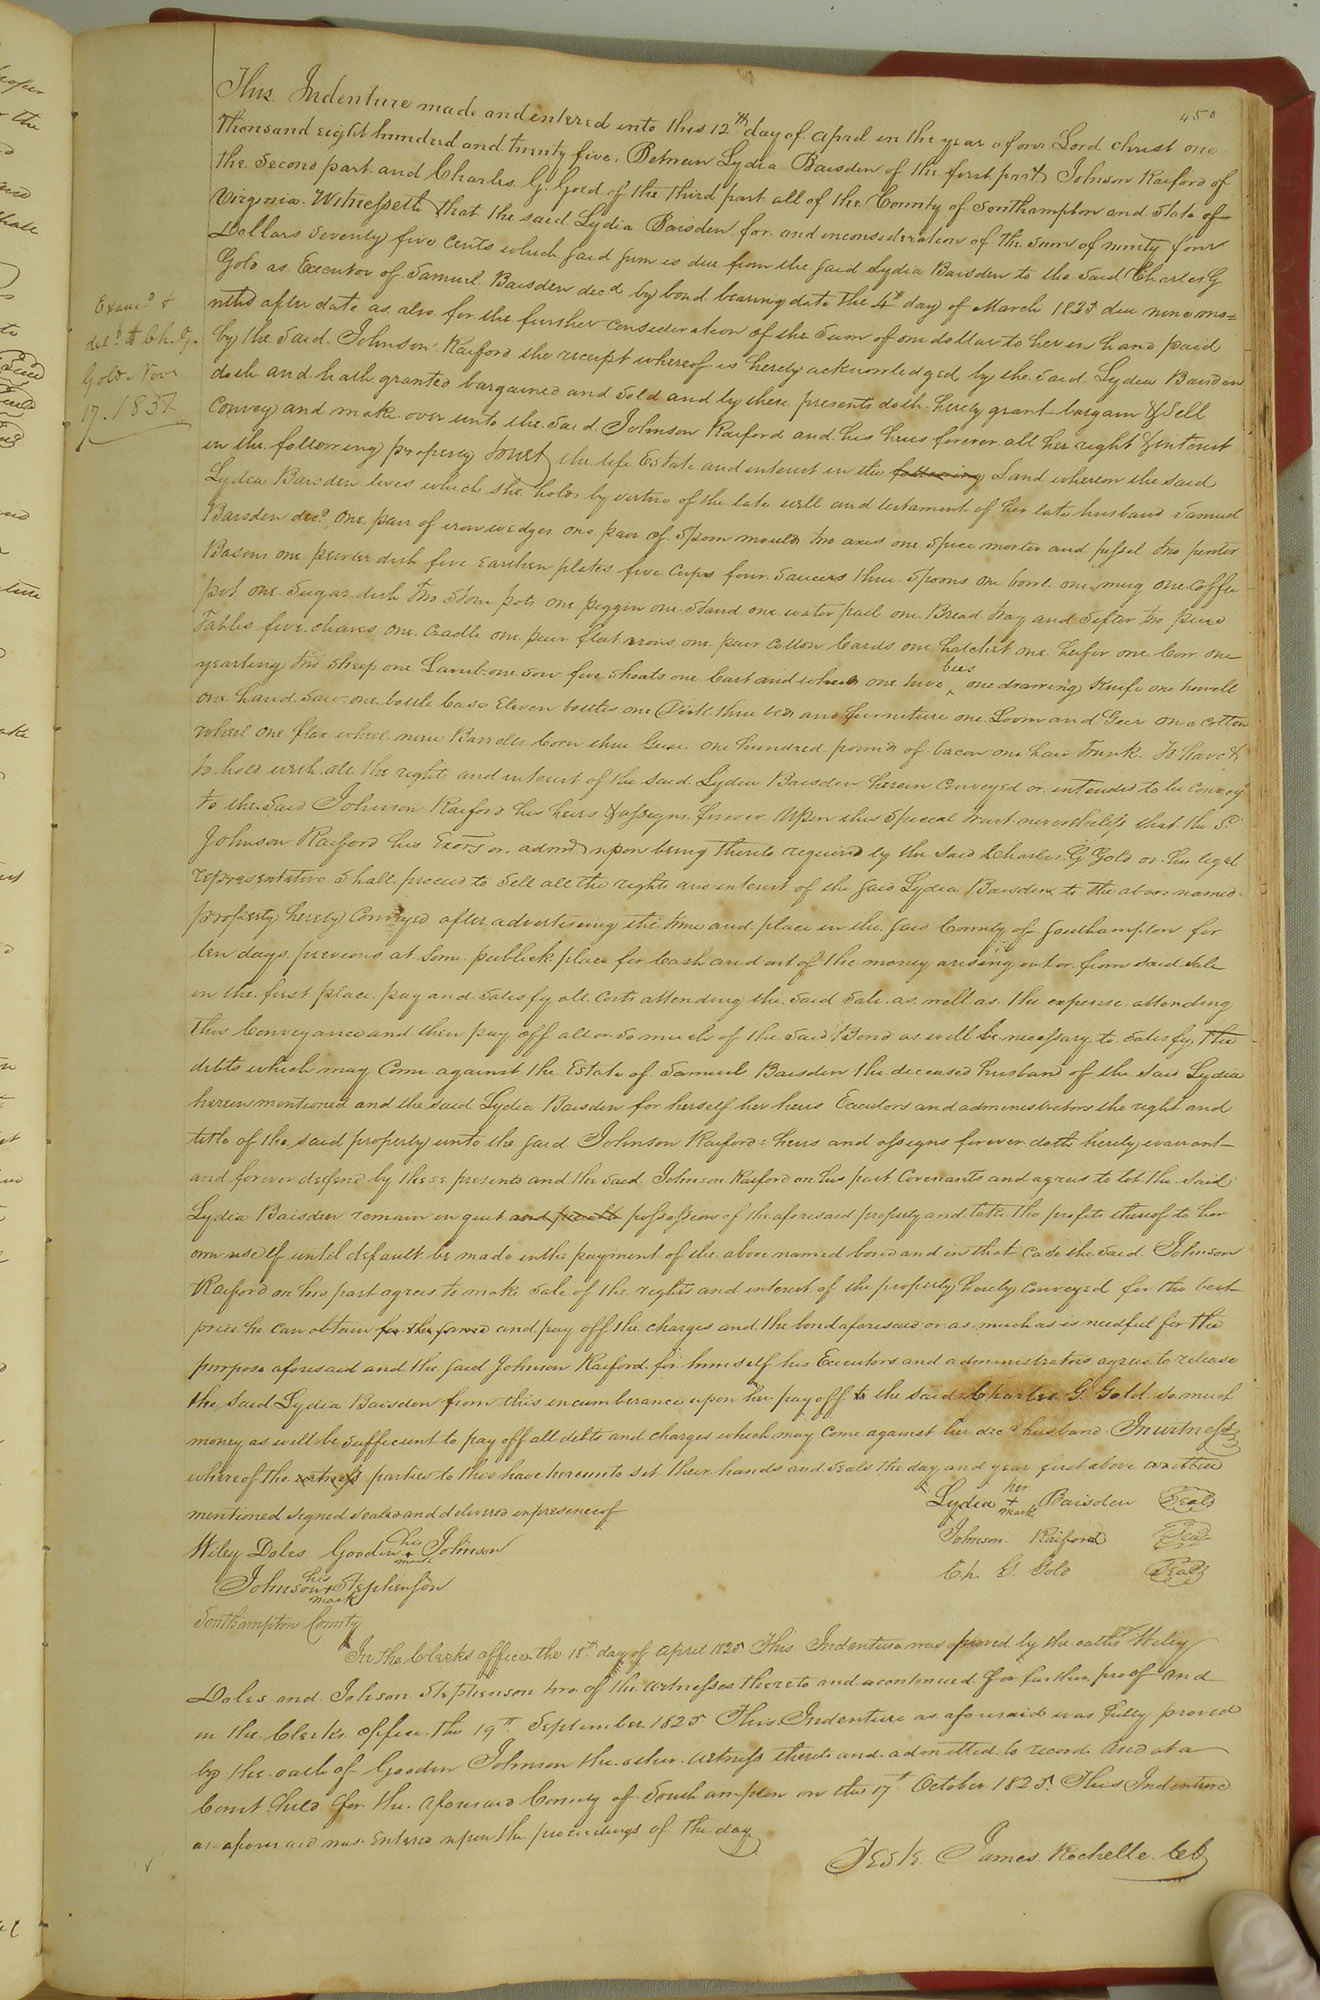 450
This Indenture made and entered into this 12th day of april in the year of our Lord Christ one
Thousand eight hundred and twenty five. Between Lydia Baisden of the first part Johnson Raiford of
the Second part and Charles G. Gold of the third part all of the County of Southampton and State of
Virginia. Witnesseth that the said Lydia Baisden for and inconsideration of the Sum of ninety four
Dollars Seventy five cents which said sum is due from the said Lydia Baisden to the said Charles G
Gold as Executor of Samuel Baisden decd by bond bearing date the 4th day of March 1825 due nine mo=
nths after date as also for the further consideration of the Sum of one dollar to her in hand paid
by the said Johnson Raiford the receipt whereof is hereby acknowledged by the said Lydia Baisden
doth and hath granted bargained and sold and by these presents doth hereby grant bargain & Sell
Convey and make over unto the Said Johnson Raiford and his heirs forever all her right & interest
in the following property towit the life Estate and interest in the following Land whereon the said
Lydia Baisden lives which she holds by virtue of the late will and testament of her late husband Samuel
Baisden decd. One pair of iron wedges one pair of Spoon moulds two axes one Spice morter and pessel two pewter
Basons one pewter dish five Earthen plates five cups four Saucers three Spoons one bowl one mug one coffee
pot one Sugar dish two Stone pots one piggin one Stand one water pail one Bread tray and Sifter two pine
Tables five chares one Cradle one pair flat irons one pair cotton Cards one hatchet one heifer one Cow one
yearling two Sheep one Lamb one Sow five Shoats one Cart and wheels one hive bees one drawing Knife one howell
one hand Saw one bottle Case Eleven bottles one Desk three beds and furniture one Loom and Geer one cotton
wheel one flax wheel nine Barrels Corn three Geese one hundred pounds of bacon one hair Trunk. To have &
to hold with all the right and interest of the said Lydia Baisden herein Conveyed or intended to be convey'd
to the Said Johnson Raiford his heirs & assigns forever Upon this Special trust nevertheless that the Sd
Johnson Raiford his Exors or admrs upon being thereto required by the said Charles G Gold or his legal
representative Shall proceed to Sell all the rights and interest of the said Lydia Baisden to the above named
property hereby Conveyed after advertiseing the time and place in the said County of Southampton for
ten days previous at Some publick place for Cash and out of the money arising out or from said Sale
in the first place pay and Satisfy all Costs attending the said Sale as well as the expense attending
This Conveyance and then pay off all or so much of the Said Bond as will be necessary to Satisfy the
debts which may Come against the Estate of Samuel Baisden the deceased husband of the said Lydia
herein mentioned and the said Lydia Baisden for herself her heirs Executors and administrators the right and
title of the said property unto the said Johnson Raiford heirs and assigns forever doth hereby warrant
and forever defend by these presents and the Said Johnson Raiford on his part Covenants and agrees to let the Said
Lydia Baisden remain in quiet and possession of the aforesaid property and take the profits thereof to her
own use If until default be made in the payment of the above named bond and in that Case the said Johnson
Raiford on his part agrees to make Sale of the rights and interest of the property hereby Conveyed for the best
price he can obtain for the same and pay off the charges and the bond aforesaid or as much as is needful for the
purpose aforesaid and the said Johnson Raiford for himself his Executors and administrators agrees to release
the Said Lydia Baisden from this incumberance upon her pay off to the said Charles G. Gold so much
money as will be Sufficient to pay off all debts and charges which may Come against her decd husband In witness
whereof the witness parties to this have hereunto set their hands and seals the day and year first above written
mentioned signed sealed and delivered inpresence of
Lydia her + mark Baisden Seal
Wiley Doles Gooden his + mark Johnson
Johnson Raiford Seal
Johnson his + mark Stephenson
Ch. G Gold Seal
Southampton County
In the Clerks office the 18th day of April 1825 This Indenture was proved by the oaths Wiley
Doles and Johson Stephenson two of the witnesses thereto and acontinued for further proof and
in the Clerks office the 19th September 1825 This Indenture as aforesaid was fully proved
by the oath of Gooden Johnson the other witness thereto and admitted to record And at a
Court held for the aforesaid County of Southampton on the 17th October 1825 This Indenture
as aforesaid was Entered upon the proceedings of the day
Teste James Rochelle CC
Examd &
deld to Ch. G.
Gold Novr
17. 1837